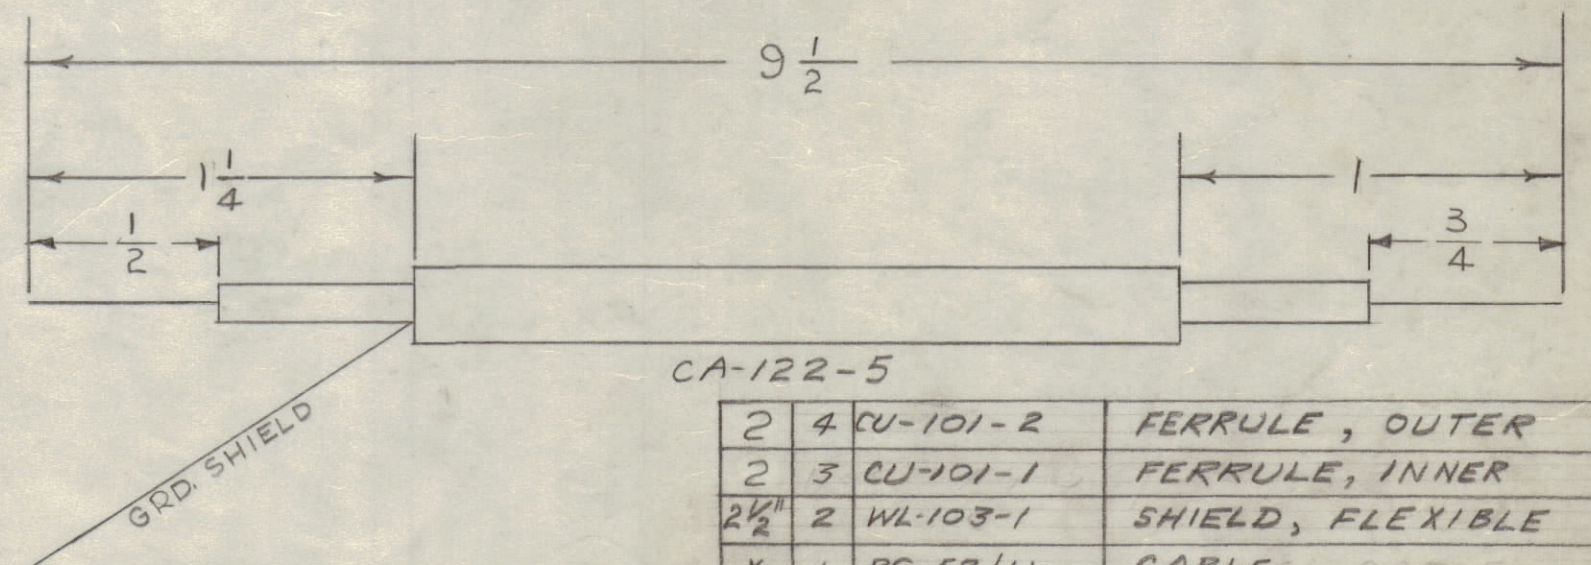 9 1/2
1 1/4
1
1/2
3/4
CA-122-5
GRD. SHIELD
2 4 CU-101-2 FERRULE, OUTER
2 3 CU-101-1 FERRULE, INNER
2 1/2" 2 WL-103-1 SHIELD, FLEXIBLE